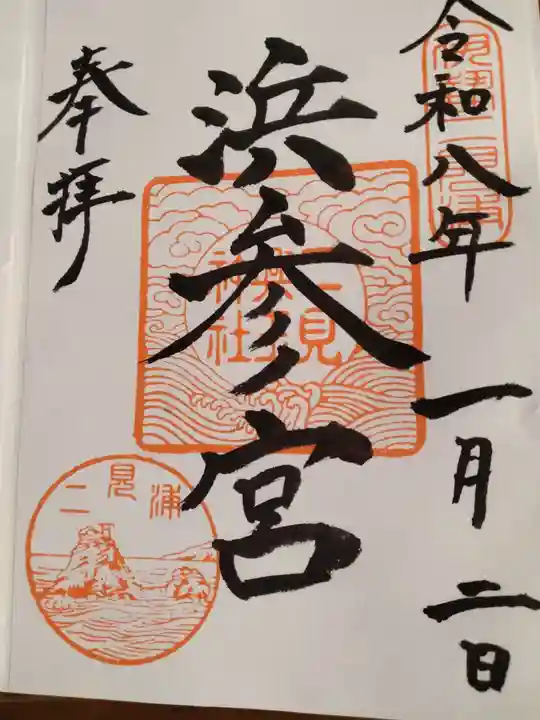 令和八年 一月 二日
浜参宮
奉拝
伊勢二見浦
二見興玉神社
二見浦